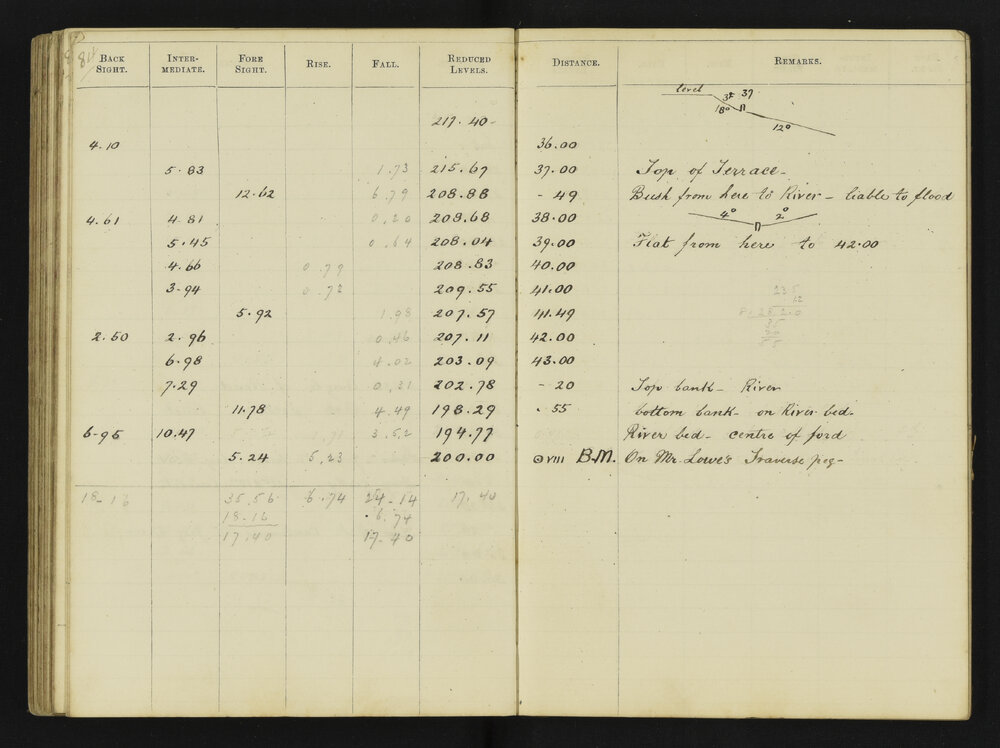 84
BACK SIGHT. INTER-MEDIATE. FORE SIGHT. RISE. FALL. REDUCED LEVELS. DISTANCE. REMARKS.
level 37
18° 12°
217.40
4.10 36.00
5.83 1.73 215.67 37.00 Top of Terrace-
12.62 6.79 208.88 - 49 Bush from here to River - liable to flood
4.61 4.81 0.20 208.68 38.00 4° 2°
5.45 0.64 208.04 39.00 Flat from here to 42.00
4.66 0.79 208.83 40.00
3.94 0.72 209.55 41.00
5.92 1.98 207.57 41.49
2.50 2.96 0.46 207.11 42.00
6.98 4.02 203.09 43.00
7.29 0.31 202.78 - 20 Top bank- River
11.78 4.49 198.29 . 55 bottom bank- on River bed-
6.95 10.47 3.52 194.77 River bed- centre of ford
5.24 5.23 200.00 ⊙VIII B.M. On Mr. Lowe's Traverse peg-
18-16 35.56 6.74 24-14 17.40
18-16 6.74
17.40 17-40